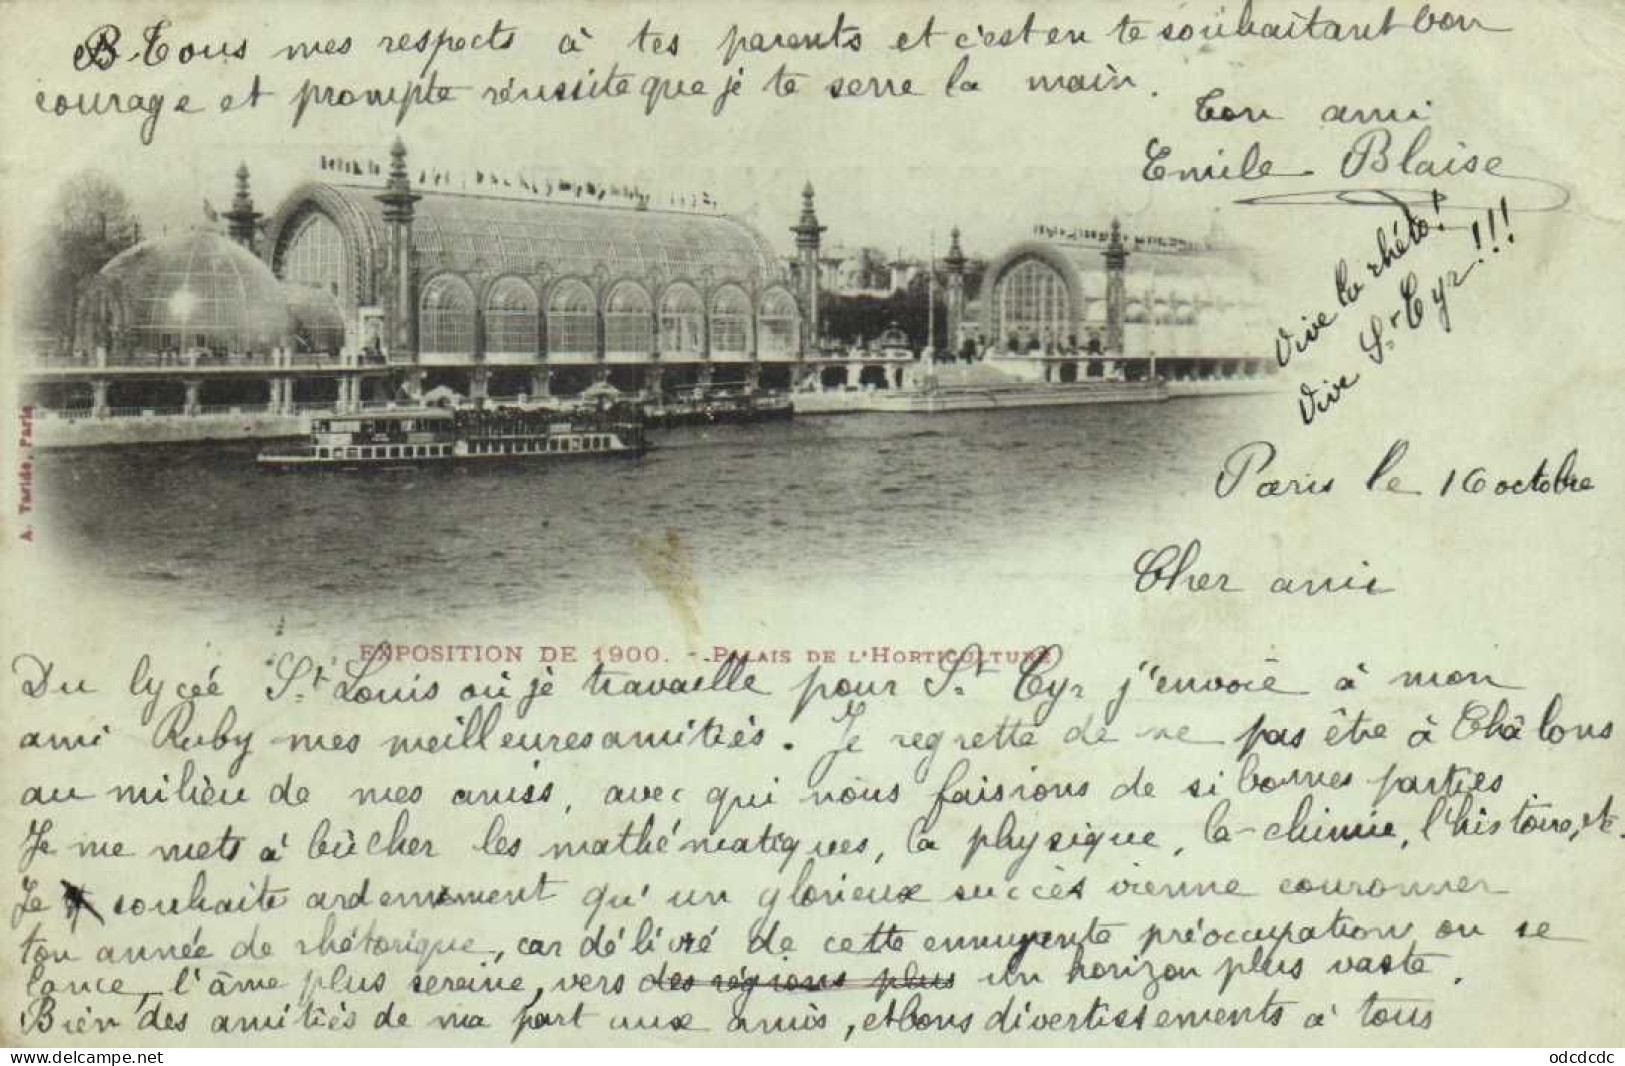 B. Tous mes respects à tes parents et c'est en te souhaitant bon
courage et prompte réussite que je te serre la main.
Ton ami
Emile Blaise
Vive la rhéto!
Vive St Cyr!!!
A. Taride, Paris
Paris le 16 octobre
Cher ami
EXPOSITION DE 1900. - PALAIS DE L'HORTICULTURE
Du lycée St Louis où je travaille pour St Cyr j'envoie à mon
ami Ruby mes meilleures amitiés. Je regrette de ne pas être à Châlons
au milieu de mes amis, avec qui nous faisions de si bonnes parties
Je me mets à bûcher les mathématiques, la physique, la chimie, l'histoire, etc.
Je souhaite ardemment qu'un glorieux succès vienne couronner
ton année de rhétorique, car délivré de cette ennuyente préoccupation on se
lance, l'âme plus sereine, vers des régions plus un horizon plus vaste.
Bien des amitiés de ma part aux amis, et bons divertissements à tous
www.delcampe.net
odcdcdc